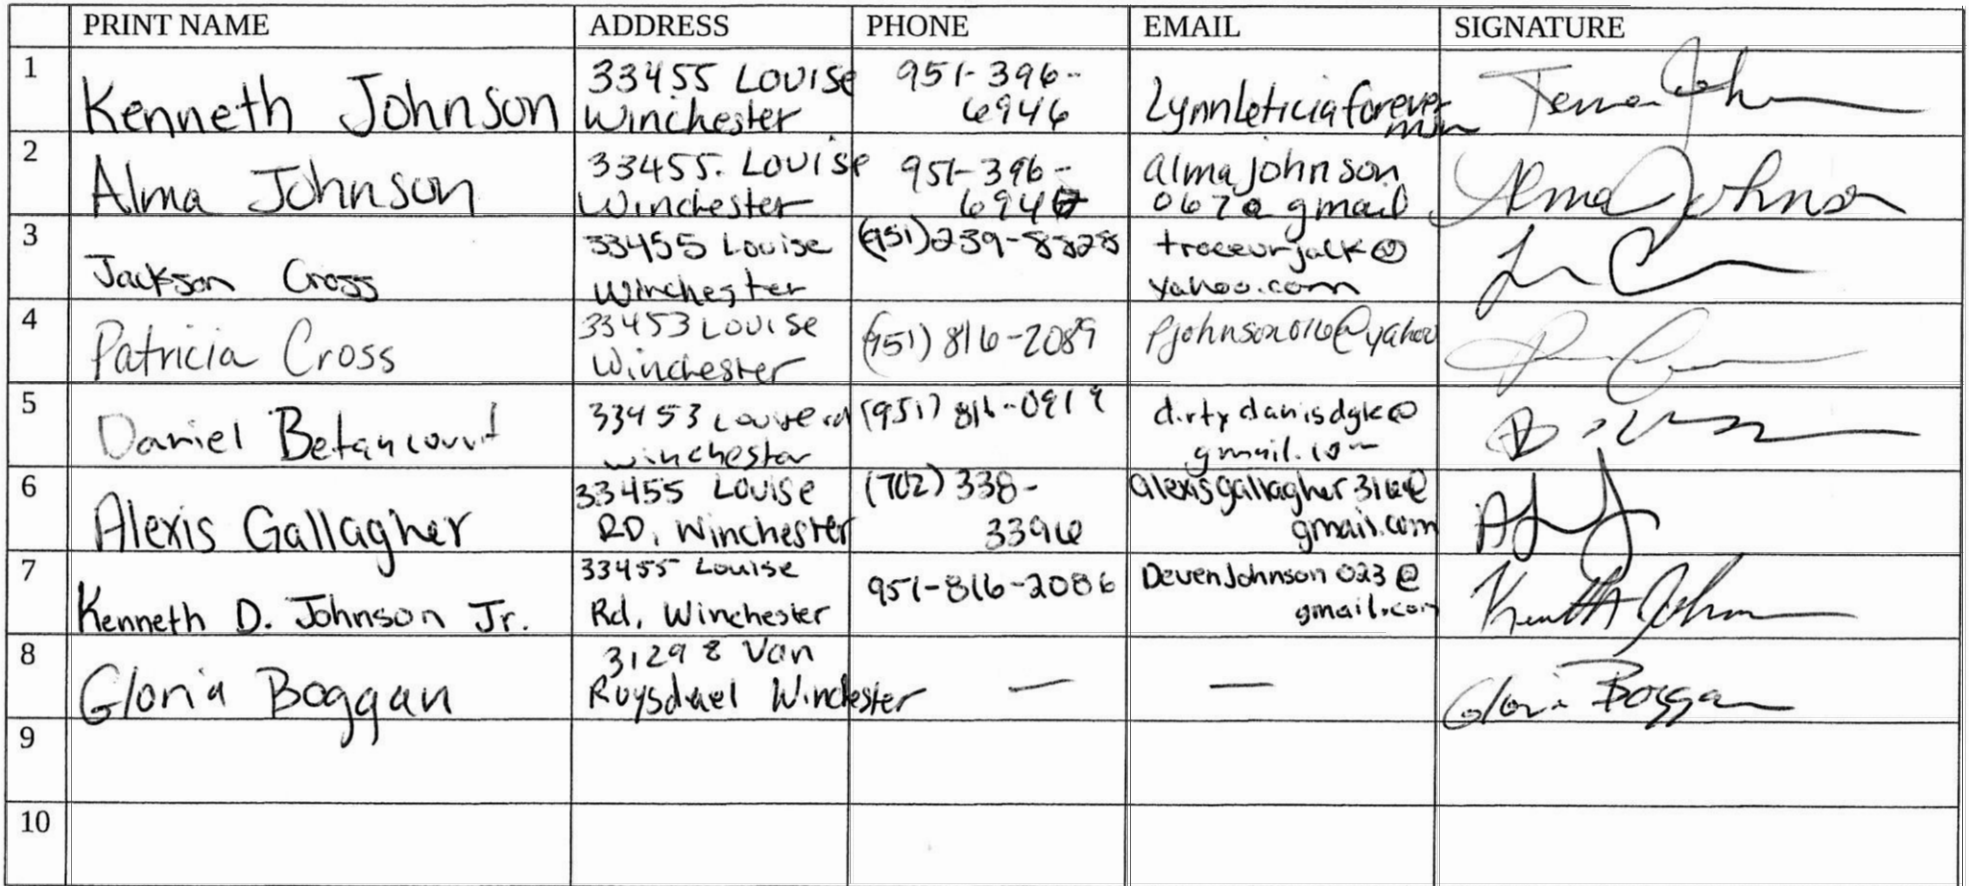 PRINT NAME ADDRESS PHONE EMAIL SIGNATURE
1
Kenneth Johnson
33455 Louise
Winchester
951-396-
6946
Lynnleticiaforever
msn
2
Alma Johnson
33455. Louise
Winchester
951-396-
694
almajohnson
067@gmail
Alma Johnson
3
Jackson Cross
33455 Louise
Winchester
(951)239-8828
yahoo.com
4
Patricia Cross
33453 Louise
Winchester
(951) 816-2089
Pjohnson016@yahoo
5
Daniel Betancourt
33453 Louise rd
winchester
(951) 816-0919
dirtydanisdgk@
gmail.com
6
Alexis Gallagher
33455 Louise
RD, Winchester
(702) 338-
3396
alexisgallagher316@
gmail.com
7
Kenneth D. Johnson Jr.
33455 Louise
Rd, Winchester
951-816-2086
DevenJohnson023@
gmail.com
Kenneth Johnson
8
Gloria Boggan
31298 Van
Ruysdael Winchester
—
—
Gloria Boggan
9
10